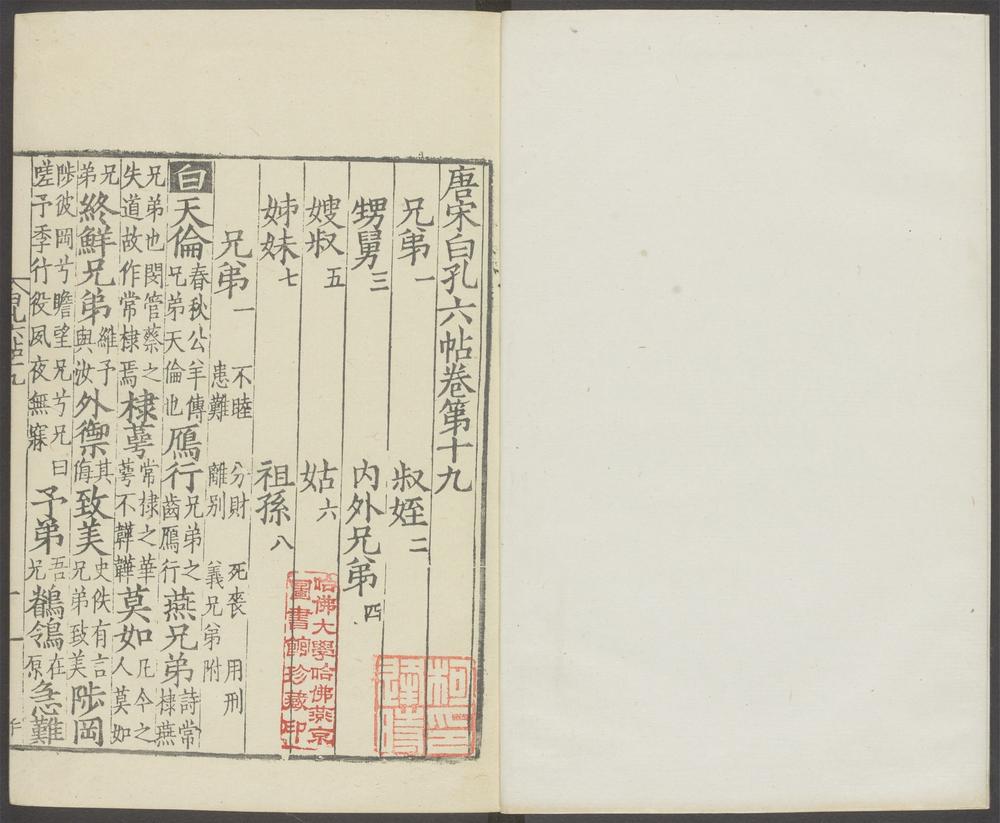 唐宋白孔六帖卷第十九
兄弟一 叔姪二
甥舅三 内外兄弟四
嫂叔五 姑六
姊妹七 祖孫八
兄弟一 不睦 患難 分財 離別 死喪 義兄弟附 用刑
白 天倫 春秋公羊傳兄弟天倫也 鴈行 兄弟之齒鴈行 燕兄弟 詩常棣燕
兄弟也閔管蔡之失道故作常棣焉 棣蕚 常棣之華蕚不韡韡 莫如 凡今之人莫如
兄弟 終鮮兄弟 維予與汝 外禦 其侮 致美 史佚有言兄弟致美 陟岡
陟彼岡兮瞻望兄兮兄曰嗟予季行役夙夜無寐 予弟 吾兄 鶺鴒 在原 急難
哈佛大學哈佛燕京
圖書館珍藏印